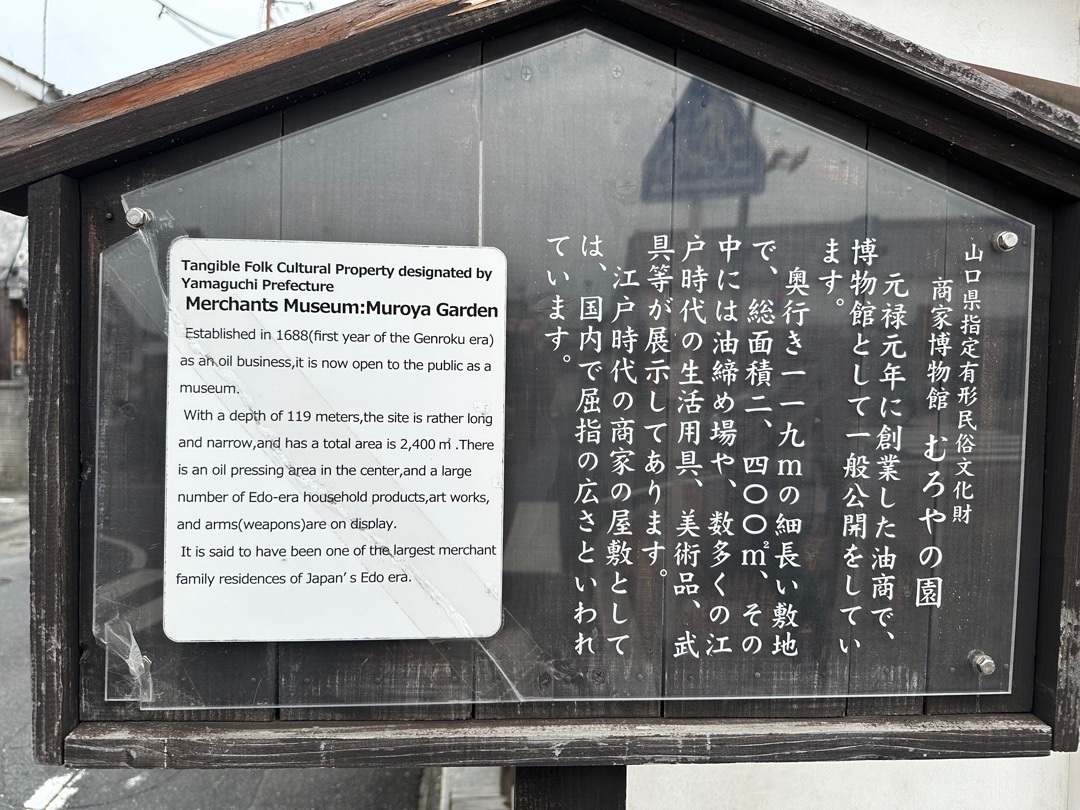 Tangible Folk Cultural Property designated by
Yamaguchi Prefecture
Merchants Museum:Muroya Garden
Established in 1688(first year of the Genroku era)
as an oil business,it is now open to the public as a
museum.
With a depth of 119 meters,the site is rather long
and narrow,and has a total area is 2,400㎡.There
is an oil pressing area in the center,and a large
number of Edo-era household products,art works,
and arms(weapons)are on display.
It is said to have been one of the largest merchant
family residences of Japan's Edo era.
山口県指定有形民俗文化財
商家博物館 むろやの園
元禄元年に創業した油商で、
博物館として一般公開をしてい
ます。
奥行き一一九mの細長い敷地
で、総面積二、四〇〇㎡、その
中には油締め場や、数多くの江
戸時代の生活用具、美術品、武
具等が展示してあります。
江戸時代の商家の屋敷として
は、国内で屈指の広さといわれ
ています。